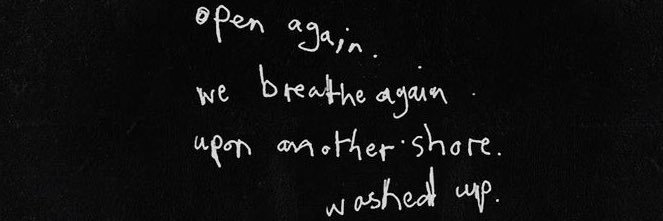 open again.
we breathe again.
upon another shore.
washed up.